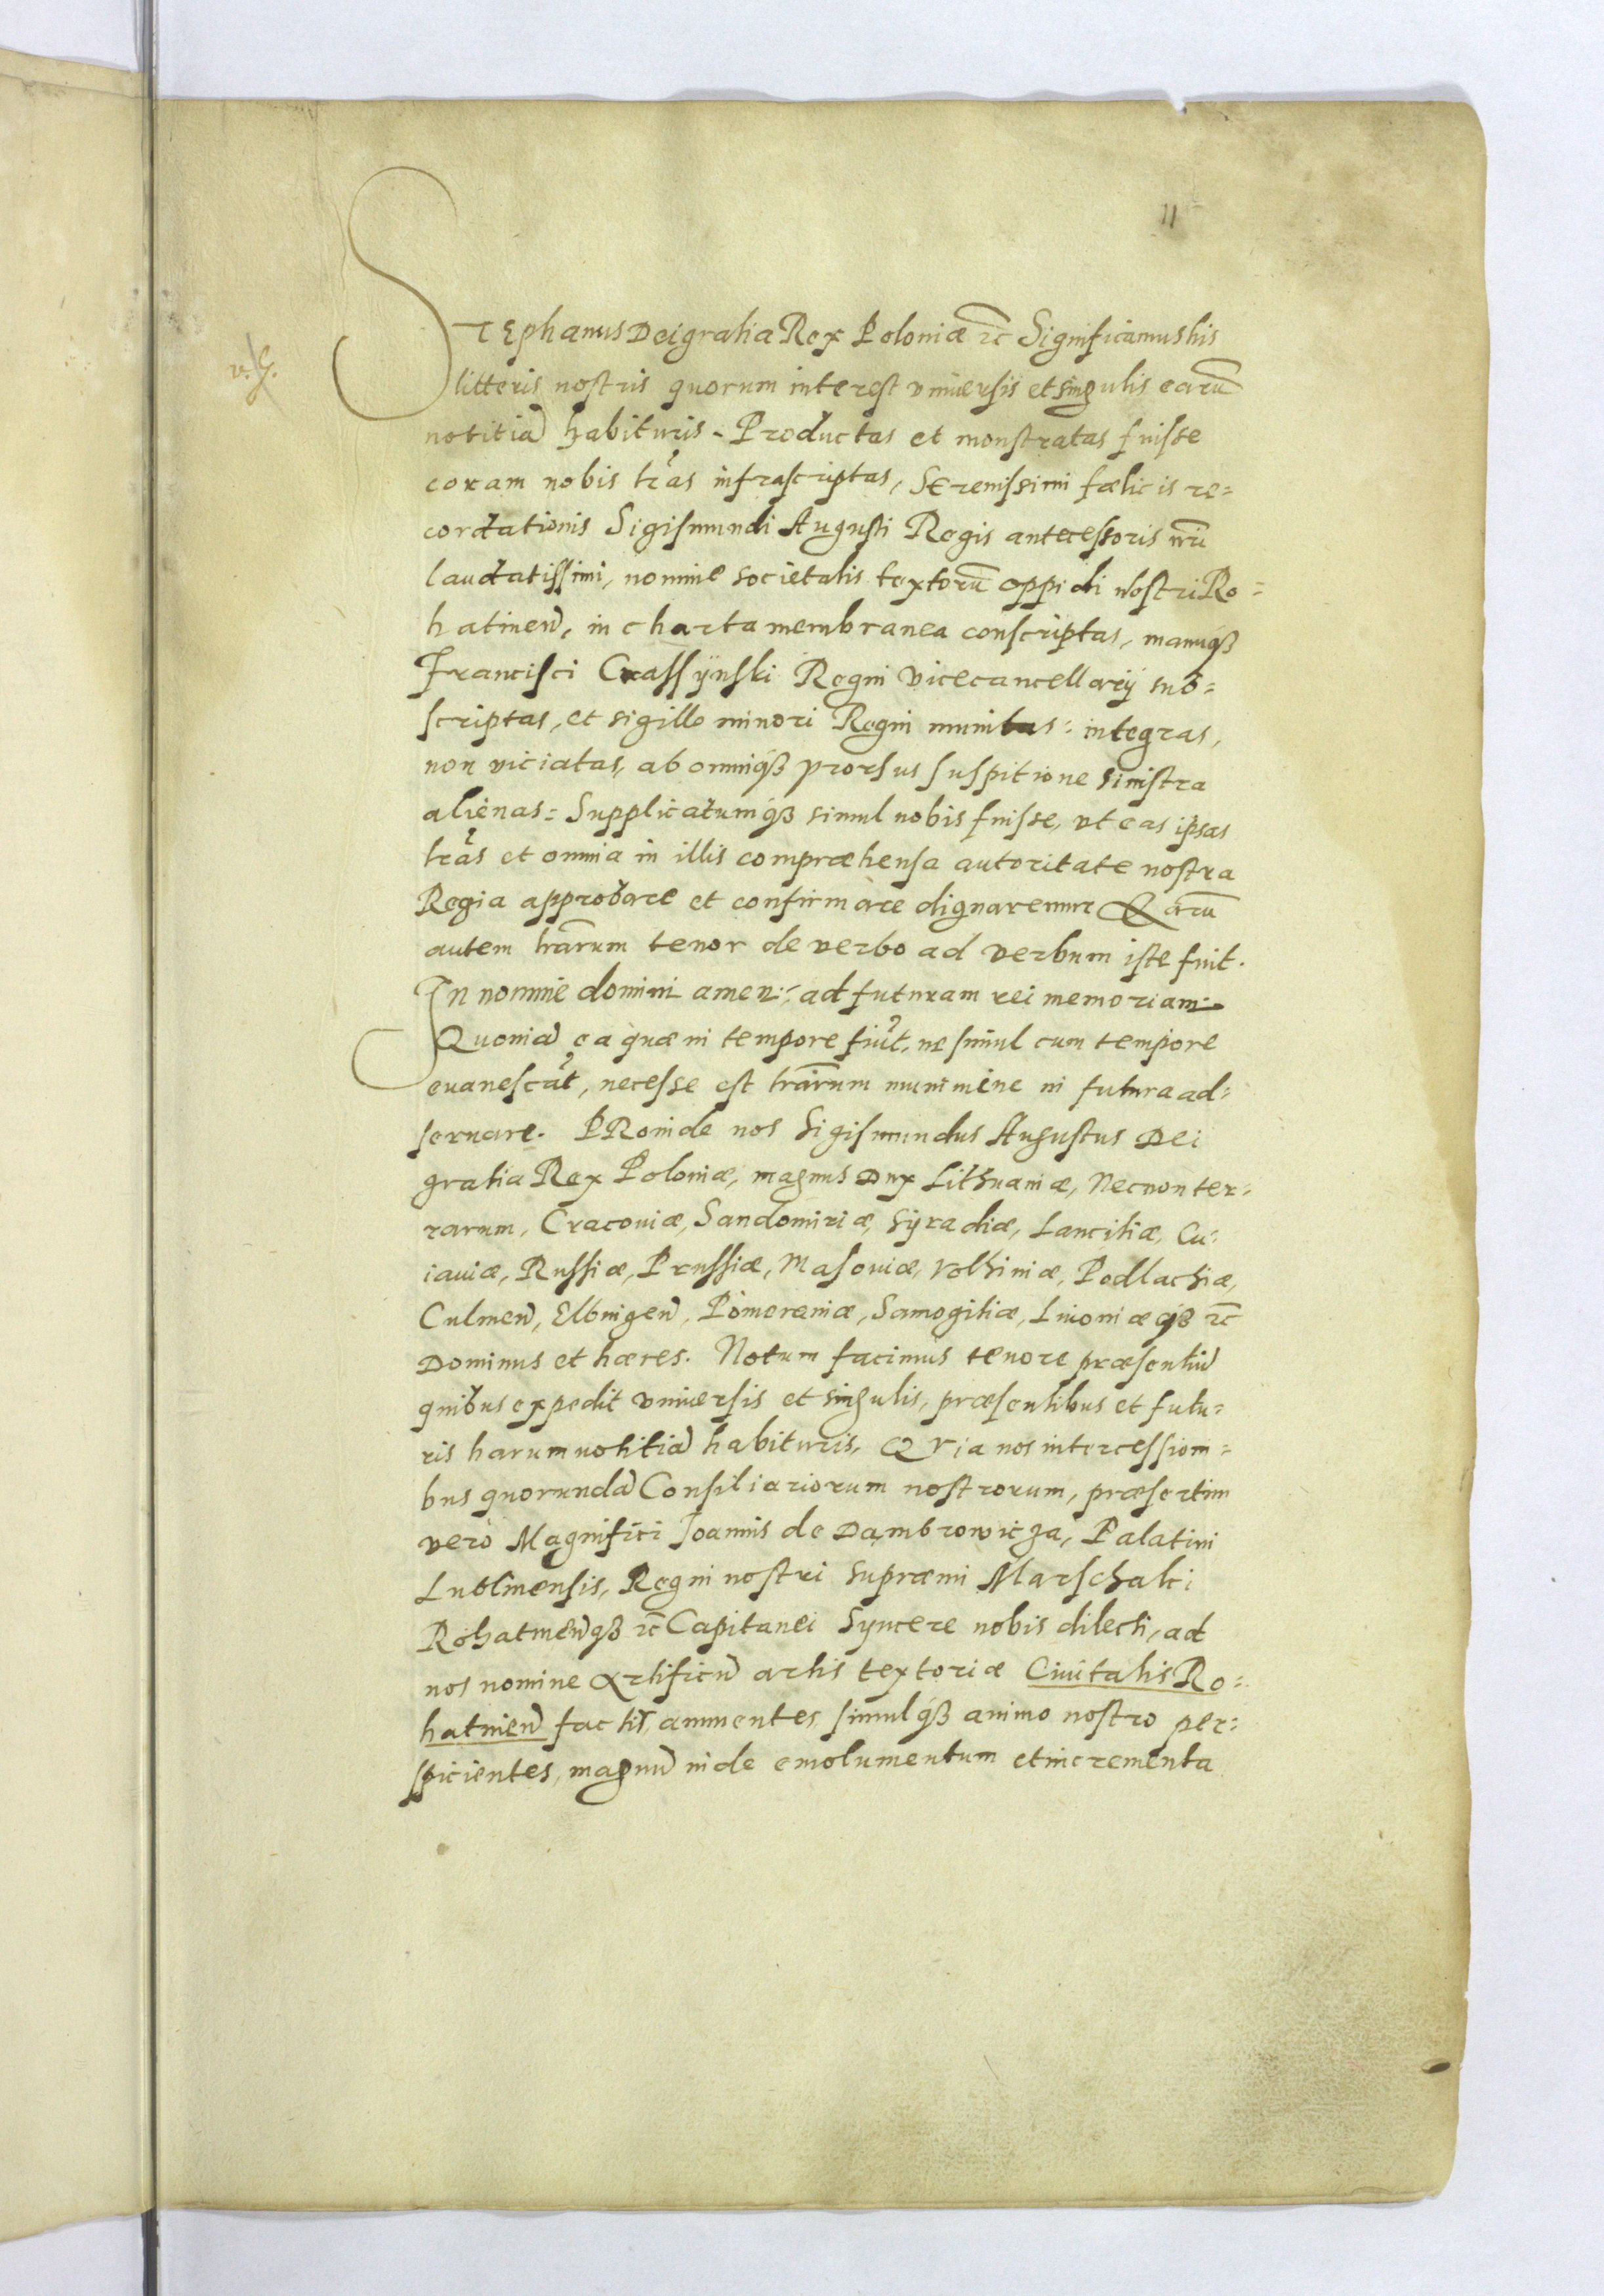 11
v. G.
STEphanus Dei gratia Rex Poloniæ ꝛc Significamus his
litteris nostris quorum interest vniuersis et singulis earū
notitiā habituris. Productas et monstratas fuisse
coram nobis lr̄as infrascriptas, Serenissimi fœlicis re=
cordationis Sigismundi Augusti Regis antecessoris nr̄i
laudatissimi, nomine societatis textorū oppidi nostri Ro=
hatineñ, in charta membranea conscriptas, manuqȝ
Francisci Crassÿnski Regni Vicecancellarÿ sub=
scriptas, et sigillo minori Regni munitas: integras,
non viciatas, ab omniqȝ prorsus suspitione sinistra
alienas: Supplicatumqȝ simul nobis fuisse, vt eas ipsas
lr̄as et omnia in illis compræhensa autoritate nostra
Regia approbare et confirmare dignaremur Quarū
autem lr̄arum tenor de verbo ad verbum iste fuit.
In nomine domini amen: ad futuram rei memoriam.
Quoniā ea quæ in tempore fiūt, ne simul cum tempore
euanescāt, necesse est lr̄arum munimine in futura ad=
seruare. PRoinde nos Sigismundus Augustus Dei
gratia Rex Poloniæ, magnus Dux Lithuaniæ, Necnon ter=
rarum, Cracouiæ, Sandomiriæ, Syradiæ, Lancitiæ, Cu=
iauiæ, Russiæ, Prussiæ, Masouiæ, Volhiniæ, Podlachiæ,
Culmeñ, Elbingeñ, Pomeraniæ, Samogitiæ, Liuoniæqȝ ꝛc
Dominus et hæres. Notum facimus tenore præsentiū
quibus expedit vniuersis et singulis, præsentibus et futu=
ris harum notitiā habituris, QVia nos intercessioni=
bus quorundā Consiliariorum nostrorum, præsertim
vero Magnifici Joannis de Dambrowicza, Palatini
Lublinensis, Regni nostri supræmi Marschalci
Rohatineñqȝ ꝛc Capitanei Syncere nobis dilecti, ad
nos nomine Artificū artis textoriæ Ciuitatis Ro=
hatineñ factis, annuentes, simulqȝ animo nostro per=
spicientes, magnū inde emolumentum et incrementa